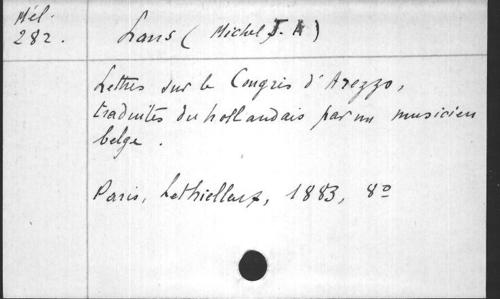 Mél.
282.
Lans (Michel J. A)
Lettres sur le Congrès d'Arezzo,
traduites du hollandais par un musicien
belge.
Paris, Lethielleux, 1883, 8º